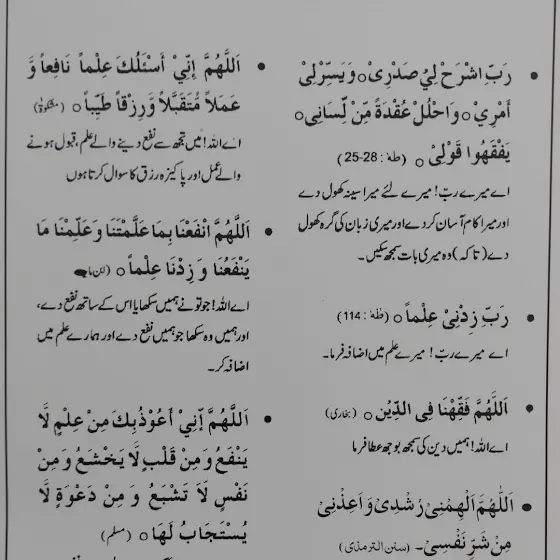 رَبِّ اشْرَحْ لِيْ صَدْرِىْ ○ وَيَسِّرْلِىْ
أَمْرِيْ ○ وَاحْلُلْ عُقْدَةً مِّنْ لِّسَانِى ○
يَفْقَهُوا قَوْلِىْ ○ (طه : 28-25)
اے میرے ربّ! میرے لئے میرا سینہ کھول دے
اور میرا کام آسان کر دے اور میری زبان کی گرہ کھول
دے (تا کہ) وہ میری بات سمجھ سکیں۔
رَبِّ زِدْنِىْ عِلْماً ○ (طٰهٰ : 114)
اے میرے ربّ! میرے علم میں اضافہ فرما۔
اَللّٰهُمَّ فَقِّهْنَا فِى الدِّيْنِ ○ (بخاری)
اے اللہ! ہمیں دین کی سمجھ بوجھ عطا فرما
اَللّٰهُمَّ اَلْهِمْنِىْ رُشْدِىْ وَ اَعِذْنِىْ
مِنْ شَرِّ نَفْسِىْ۔ (سنن الترمذی)
اَللّٰهُمَّ إِنِّيْ أَسْئَلُكَ عِلْماً نَافِعاً وَّ
عَمَلاً مُّتَقَبَّلاً وَّرِزْقاً طَيِّباً ○ (مشکوٰۃ)
اے اللہ! میں تجھ سے نفع دینے والے علم، قبول ہونے
والے عمل اور پاکیزہ رزق کا سوال کرتا ہوں
اَللّٰهُمَّ انْفَعْنَا بِمَا عَلَّمْتَنَا وَعَلِّمْنَا مَا
يَنْفَعُنَا وَ زِدْنَا عِلْماً ○
اے اللہ! جو تو نے ہمیں سکھایا اس کے ساتھ نفع دے،
اور ہمیں وہ سکھا جو ہمیں نفع دے اور ہمارے علم میں
اضافہ کر۔
اَللّٰهُمَّ إِنِّيْ أَعُوْذُبِكَ مِنْ عِلْمٍ لَّا
يَنْفَعُ وَ مِنْ قَلْبٍ لَّا يَخْشَعُ وَ مِنْ
نَفْسٍ لَّا تَشْبَعُ وَ مِنْ دَعْوَةٍ لَّا
يُسْتَجَابُ لَهَا ○ (مسلم)